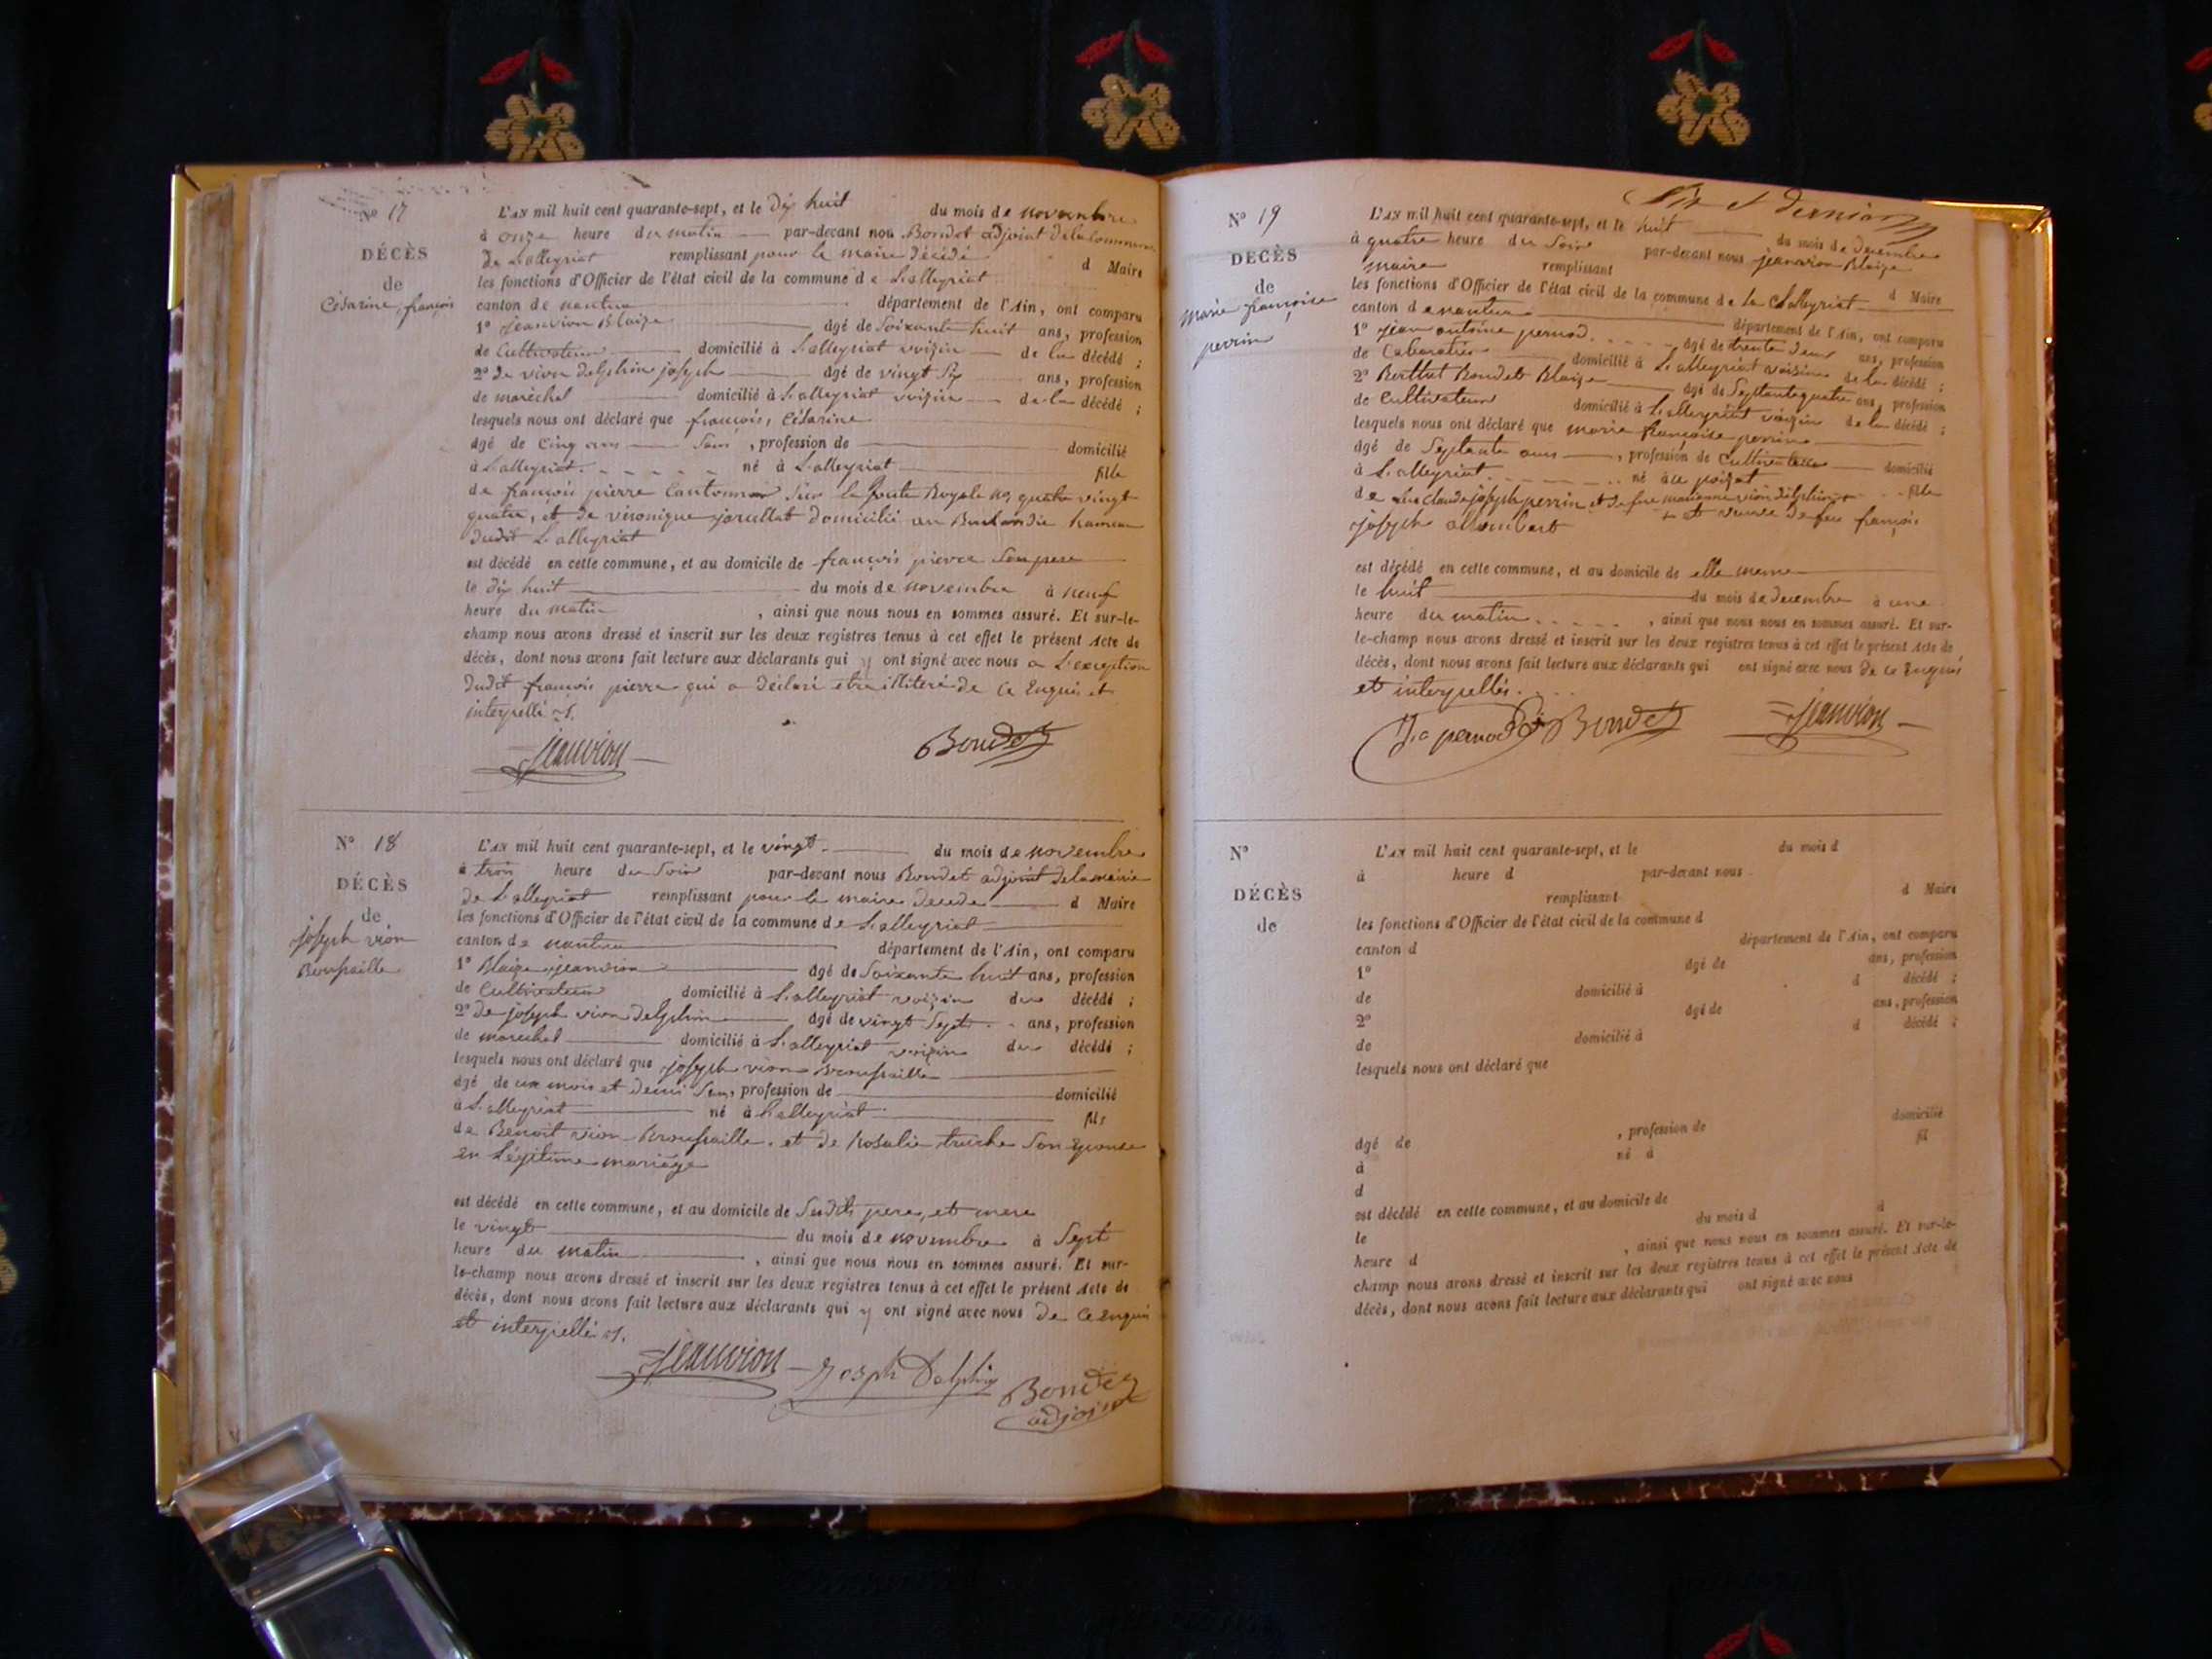 Nº 17
DÉCÈS
de
Césarine, françois
L'AN mil huit cent quarante-sept, et le Dix huit du mois de novembre
à onze heure du matin par-devant nou Bondet adjoint de la commune
de Lalleyriat remplissant pour le maire décédé d Maire
les fonctions d'Officier de l'état civil de la commune de Lalleyriat
canton de nantua département de l'Ain, ont comparu
1º jeanvion Blaize âgé de Soixante huit ans, profession
de Cultivateur domicilié à Lalleyriat voizin de la décédé ;
2º de vion delphin joseph âgé de vingt Six ans, profession
de maréchal domicilié à Lalleyriat voizin de la décédé ;
lesquels nous ont déclaré que françois, Césarine
âgé de Cinq ans Sans , profession de domicilié
à Lalleyriat né à Lalleyriat fille
de françois pierre Cantonnier Sur la Route Royale nº quatre vingt
quatre, et de véronique domicilié au hameau
dudit Lalleyriat
est décédé en cette commune, et au domicile de françois pierre Son pere
le dix huit du mois de novembre à neuf
heure du matin , ainsi que nous nous en sommes assuré. Et sur-le-
champ nous avons dressé et inscrit sur les deux registres tenus à cet effet le présent Acte de
décès, dont nous avons fait lecture aux déclarants qui y ont signé avec nous a L'exception
dudit françois pierre qui a déclaré etre illiteré de ce Enquis et
interpellé
Jeanvion Bondet
Nº 18
DÉCÈS
de
joseph vion
Broussaille
L'AN mil huit cent quarante-sept, et le vingt du mois de novembre
à trois heure du Soir par-devant nous Bondet adjoint de la mairie
de Lalleyriat remplissant pour le maire décédé d Maire
les fonctions d'Officier de l'état civil de la commune de Lalleyriat
canton de nantua département de l'Ain, ont comparu
1º Blaize jeanvion âgé de Soixante huit ans, profession
de Cultivateur domicilié à Lalleyriat voizin du décédé ;
2º de joseph vion delphin âgé de vingt Sept ans, profession
de marechal domicilié à Lalleyriat voizin du décédé ;
lesquels nous ont déclaré que joseph vion Broussaille
âgé de un mois et demi San, profession de domicilié
à Lalleyriat né à Lalleyriat fils
de Benoit vion Broussaille, et de Rosalie truche Son Epouse
en Légitime mariage
est décédé en cette commune, et au domicile de Sesdits pere, et mere
le vingt du mois de novembre à Sept
heure du matin , ainsi que nous nous en sommes assuré. Et sur-
le-champ nous avons dressé et inscrit sur les deux registres tenus à cet effet le présent Acte de
décès, dont nous avons fait lecture aux déclarants qui y ont signé avec nous de ce enquis
et interpellé
Jeanvion Joseph Delphin Bondet
adjoint
Six et dernier
Nº 19
DÉCÈS
de
marie françoise
perrin
L'AN mil huit cent quarante-sept, et le huit du mois de decembre
à quatre heure du Soir par-devant nous jeanvion Blaize
maire remplissant d Maire
les fonctions d'Officier de l'état civil de la commune de Lalleyriat
canton de nantua département de l'Ain, ont comparu
1º jean antoine pernod âgé de trente deux ans, profession
de Cabaretier domicilié à Lalleyriat voisin de la décédé ;
2º Berthet Bondet Blaize âgé de Septante quatre ans, profession
de Cultivateur domicilié à Lalleyriat voizin de la décédé ;
lesquels nous ont déclaré que marie françoise perrin
âgé de Septante ans , profession de Cultivatrice domicilié
à Lalleyriat né au poizat fille
de feu Claude joseph perrin et de feue marianne vion delphin + et veuve de feu françois
joseph allombert
est décédé en cette commune, et au domicile de elle meme
le huit du mois de decembre à une
heure du matin , ainsi que nous nous en sommes assuré. Et sur-
le-champ nous avons dressé et inscrit sur les deux registres tenus à cet effet le présent Acte de
décès, dont nous avons fait lecture aux déclarants qui ont signé avec nous de ce Enquis
et interpellés
J. a pernod Bondet Jeanvion
Nº
DÉCÈS
de
L'AN mil huit cent quarante-sept, et le du mois d
à heure d par-devant nous
remplissant d Maire
les fonctions d'Officier de l'état civil de la commune d
canton d département de l'Ain, ont comparu
1º âgé de ans, profession
de domicilié à d décédé ;
2º âgé de ans, profession
de domicilié à d décédé ;
lesquels nous ont déclaré que
âgé de , profession de domicilié
à né à fil
d
est décédé en cette commune, et au domicile de d
le du mois d
heure d , ainsi que nous nous en sommes assuré. Et sur-le-
champ nous avons dressé et inscrit sur les deux registres tenus à cet effet le présent Acte de
décès, dont nous avons fait lecture aux déclarants qui ont signé avec nous